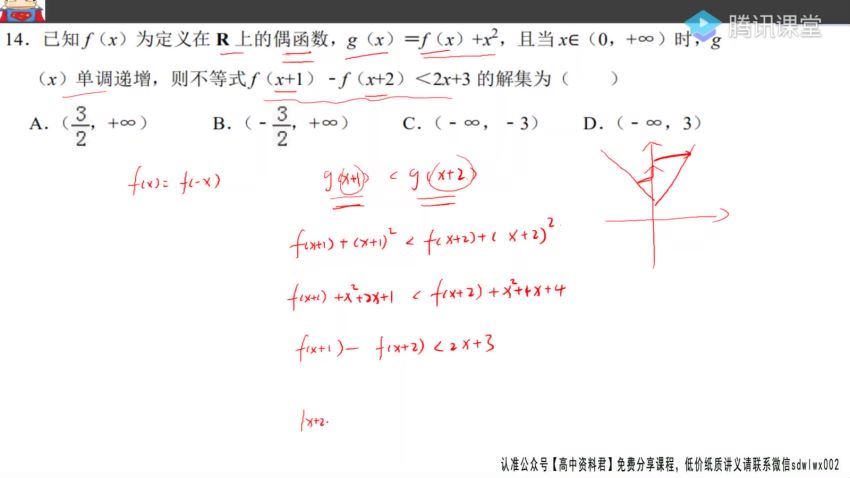 腾讯课堂
14. 已知 f（x）为定义在 R 上的偶函数，g（x）＝f（x）+x²，且当 x∈（0，+∞）时，g
（x）单调递增，则不等式 f（x+1）﹣f（x+2）＜2x+3 的解集为（　　）
A.（3/2，+∞）　B.（﹣3/2，+∞）　C.（﹣∞，﹣3）　D.（﹣∞，3）
f(x)= f(-x)
g(x+1) < g(x+2)
f(x+1)+(x+1)² < f(x+2)+(x+2)²
f(x+1)+x²+2x+1 < f(x+2)+x²+4x+4
f(x+1)- f(x+2) < 2x+3
|x+2.
认准公众号【高中资料君】免费分享课程，低价纸质讲义请联系微信sdwlwx002